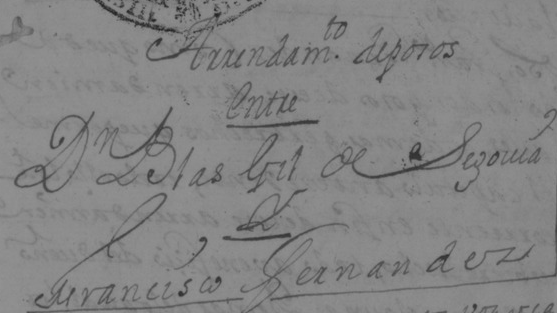 Arrendam.to de poros
Entre
Dn Blas Gil de Segovia
Y
Francisco Hernandez